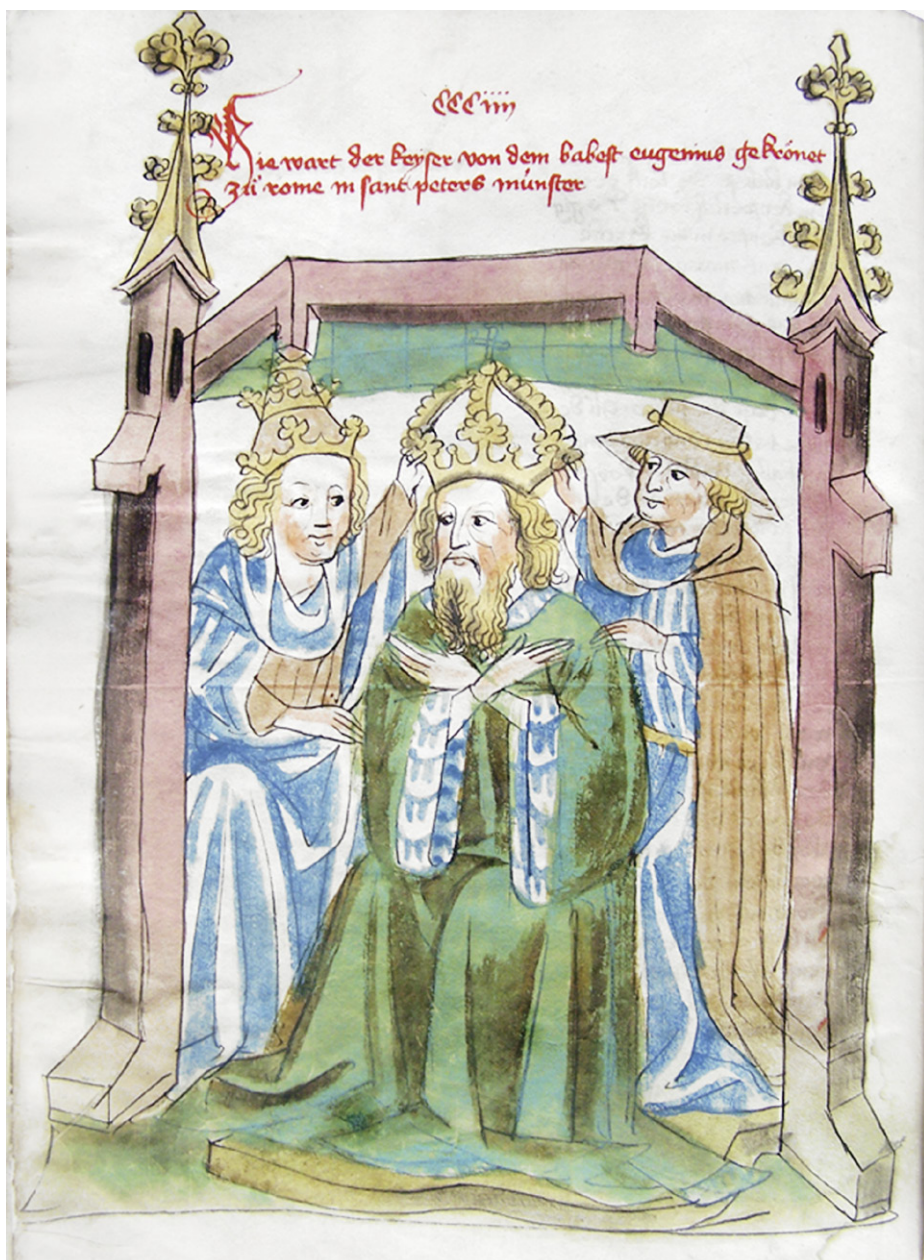 CCCiiii
Hie wart der keyser von dem babest eugenius gekrönet
zů rome in sant peters múnster